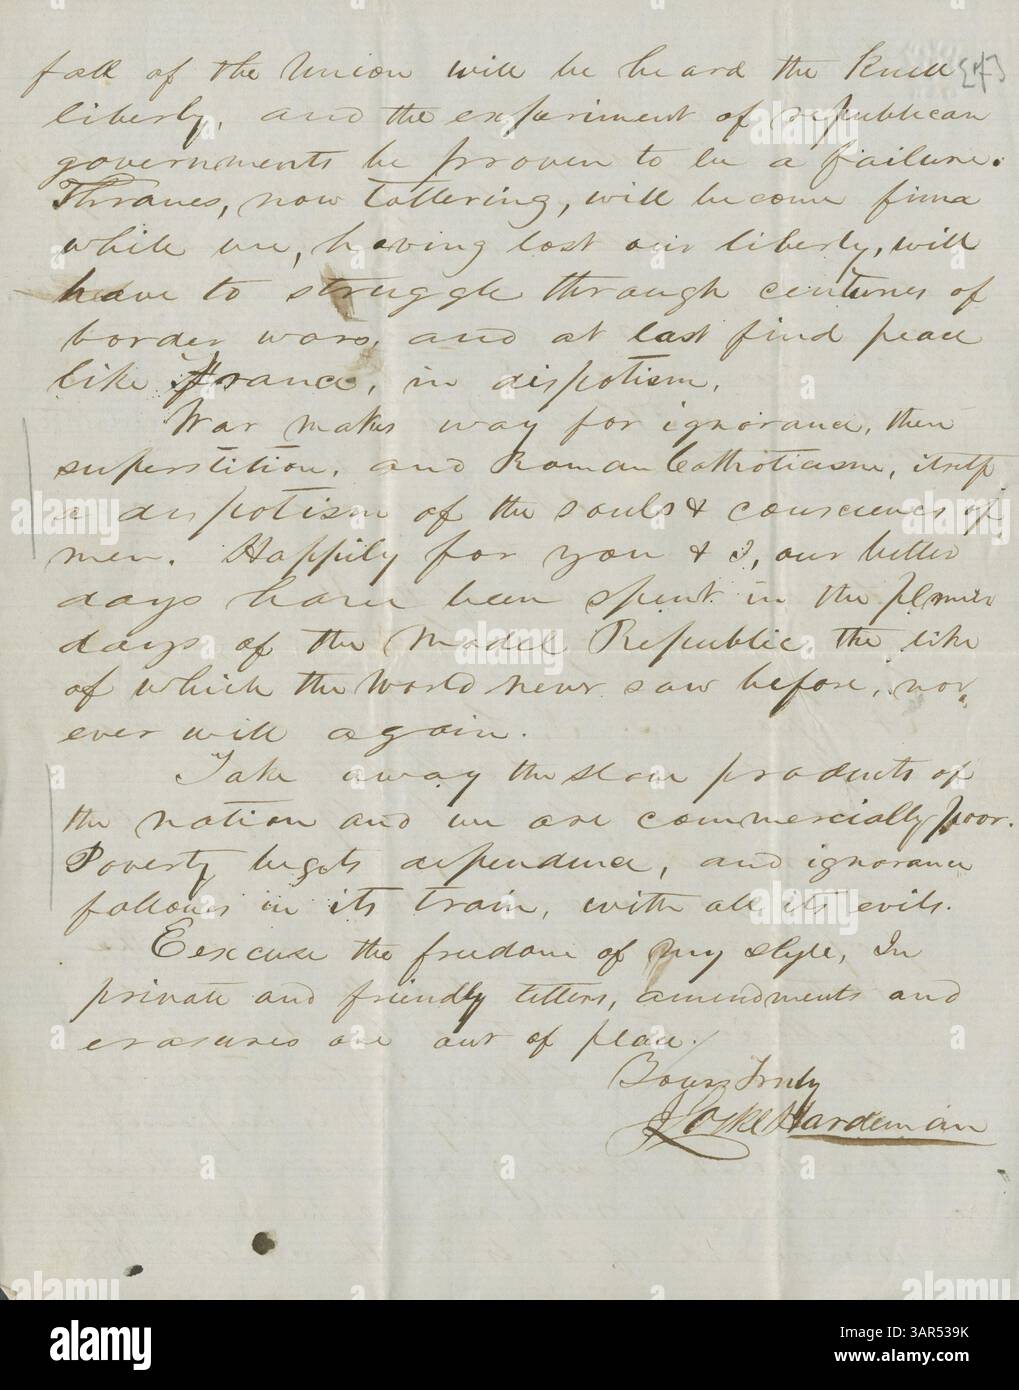 fall of the Union will be heard the Knell [4]
liberty, and the experiment of republican
governments be proven to be a failure.
Thrones, now tottering, will become firm
while we, having lost our liberty, will
have to struggle through centuries of
border wars, and at last find peace
like France, in dispotism.
War makes way for ignorance, then
superstition, and Roman Catholicism, itself
a dispotism of the souls & consciences of
men. Happily for you & I, our better
days have been spent in the
days of the Model Republic the like
of which the World never saw before, nor
ever will again.
Take away the slave products of
the nation and we are commercially poor.
Poverty begets dependence, and ignorance
follows in its train, with all its evils.
Excuse the freedom of my style, In
private and friendly letters, amendments and
erasures are out of place.
Yours Truly
Locke Hardeman
alamy
Image ID: 3AR539K
www.alamy.com